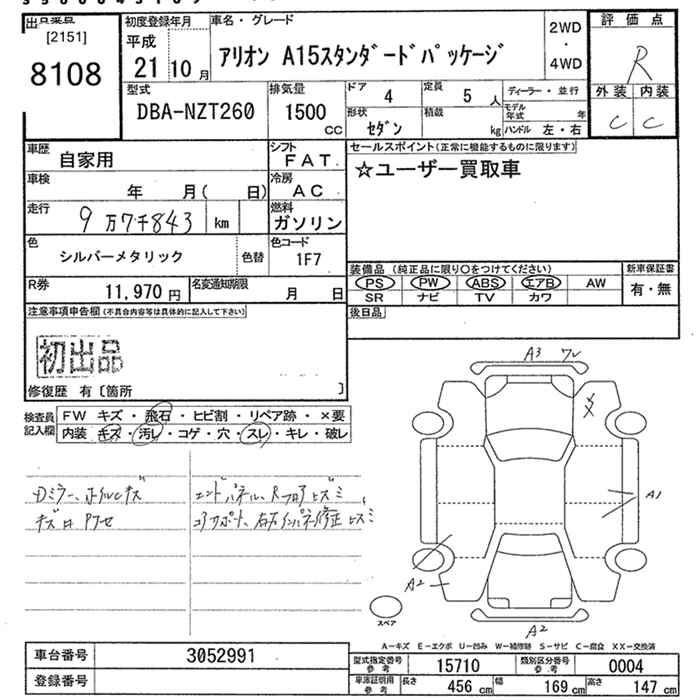 出品番号
[2151]
8108
初度登録年月
平成
21 10 月
車名・グレード
アリオン A15スタンダードパッケージ
2WD
・
4WD
評価点
R
外装 内装
C C
型式
DBA-NZT260
排気量
1500
CC
ドア
4
定員
5 人
形状
セダン
積載
kg
ディーラー・並行
モデル年式 年
ハンドル 左・右
車歴
自家用
シフト
FAT
車検
年 月( 日)
冷房
AC
走行
9万7千843 km
燃料
ガソリン
色
シルバーメタリック
色替
色コード
1F7
R券
11,970 円
名変通知期限
月 日
セールスポイント(正常に機能するものに限ります)
☆ユーザー買取車
装備品 (純正品に限り○をつけてください)
新車保証書
PS PW ABS エアB AW
有・無
SR ナビ TV カワ
後日品
注意事項申告欄(不具合内容等は具体的に記入して下さい)
初出品
修復歴 有〔箇所 〕
検査員
記入欄
FW キズ・飛石・ヒビ割・リペア跡・×要
内装・キズ・汚レ・コゲ・穴・スレ・キレ・破レ
Dミラー、ホイルCキズ
エンドパネル、Rフロアヒズミ、
コアサポート、右万インパネ修正ヒズミ
A3
A1
A2
A2
スペア
A―キズ E―エクボ U―凹み W―補修跡 S―サビ C―腐食 XX―交換済
車台番号
3052991
登録番号
型式指定番号
参考
15710
類別区分番号
参考
0004
車庫証明用
参考
長さ 456 cm
幅 169 cm
高さ 147 cm